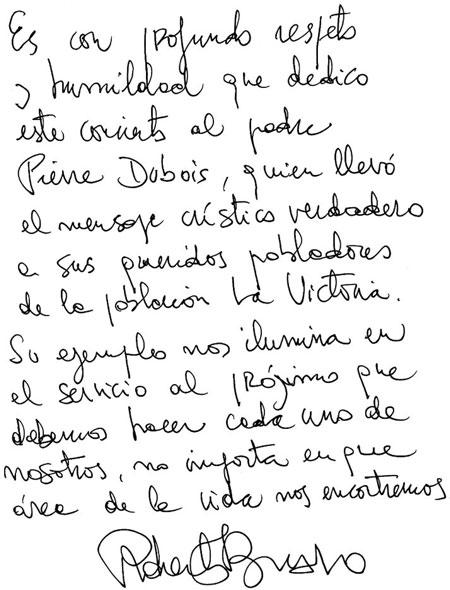 Es con profundo respeto
y humildad que dedico
este concierto al padre
Pierre Dubois, quien llevó
el mensaje crístico verdadero
a sus queridos pobladores
de la población La Victoria.
Su ejemplo nos ilumina en
el servicio al prójimo que
debemos hacer cada uno de
nosotros, no importa en que
área de la vida nos encontremos
Roberto Bravo